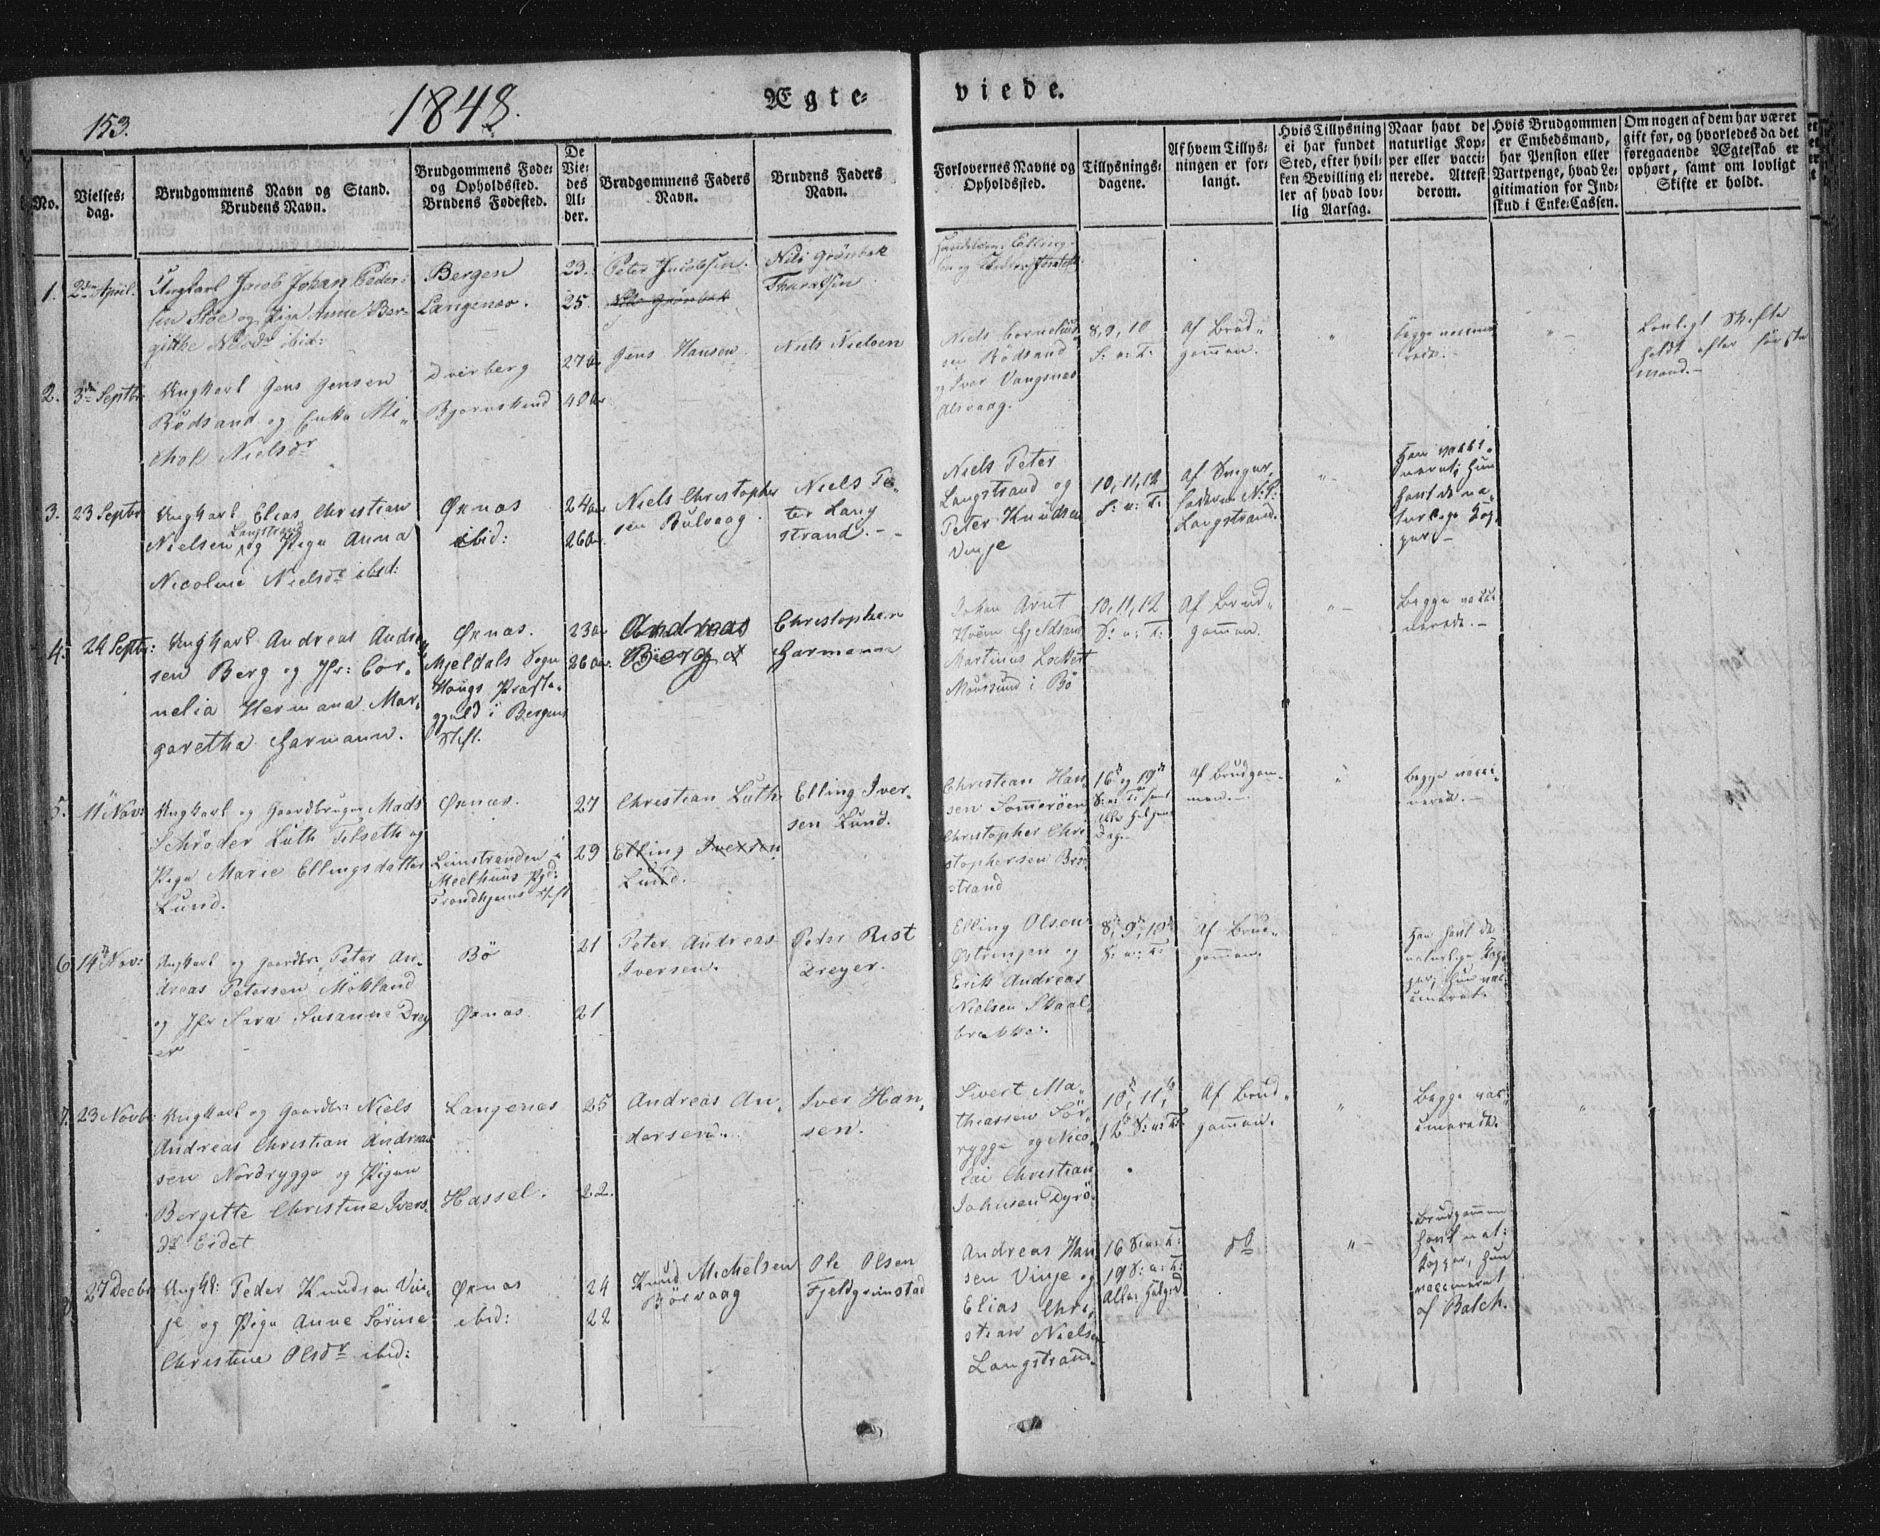 153.
1848.
Ægte-
viede.
No.
Vielses-
dag.
Brudgommens Navn og Stand.
Brudens Navn.
Brudgommens Føde-
og Opholdssted.
Brudens Fødested.
De
Vie-
des
Al-
der.
Brudgommens Faders
Navn.
Brudens Faders
Navn.
Forlovernes Navne og
Opholdssted.
Tillysnings-
dagene.
Af hvem Tillys-
ningen er for-
langt.
Hvis Tillysning
ei har fundet
Sted, efter hvil-
ken Bevilling el-
ler af hvad lov-
lig Aarsag.
Naar havt de
naturlige Kop-
per eller vacci-
nerede. Attest
derom.
Hvis Brudgommen
er Embedsmand,
har Pension eller
Vartpenge, hvad Le-
gitimation for Ind-
skud i Enke-Cassen.
Om nogen af dem har været
gift før, og hvorledes da det
foregaaende Ægteskab er
ophørt, samt om lovligt
Skifte er holdt.
1.
2den April
Ungkarl Jacob Johan Peder-
sen Støe og Pige Anne Ber-
githe ibid:
Bergen
Langenes.
23.
25.
Peter Jacobsen.
Nils Grønbek
Nils Grønbek
2.
3de Septbr
Ungkarl Jens Jensen
Rödsand og Enke
Nielsdr
Dverberg
Bjørnskind
27 Aar
40 Aar
Jens Hansen
Niels Nielsen
Niels Cornelius-
sen Rödsand
og Iver Vangsnes
Alsvaag.
8, 9, 10
S: a: T:
Af Brud-
gommen.
Begge vacci-
nerede.
Lovligt Skifte
holdt efter første
Mand.-
3.
23 Septbr
Ungkarl Elias Christian
Nielsen Langstrand og Pige Anna
Nicoline Nielsdr ibid:
Øxnæs
ibid:
24 Aar
26 Aar
Niels Christopher
sen Bulvaag.
Niels Pe-
ter Lang
strand.-
Niels Peter
Langstrand og
Peter Knudsen
Vinje
10, 11, 12
S: a: T:
Af Sviger-
faderen N: P:
Langstrand.
Han vacci-
neret; Hun
havt de na-
turlige Kop
per.-
4.
24 Septbr:
Ungkarl Andreas Andrea
sen Berg og Jfr: Cor-
nelia Hermana Mar-
garetha Garmann.
Øxnæs.
Mjeldals Sogn
Hougs Præste-
gjeld i Bergens
Stift.
23 Aar
26 Aar
Andreas
Berg
Christopher
Garmann
Johan Arnt
Hveem Gjeldsand
Martinus Lockert
Maursund i Bø
10, 11, 12
S: a: T:
Af Brud-
gommen.
Begge vacci-
nerede.-
5.
11te Novbr:
Ungkarl og Gaardbruger Mads
Schrøder Luth Tilseth og
Pige Marie Ellingsdatter
Lund.
Øxnæs.
Leinstranden i
Meelhuus Pgd:
Trondhjems Stift
27
29
Christian Luth
Elling Iversen
Lund.
Elling Iver-
sen Lund.
Christian Han
sen Sommerøen
Christopher Chri-
stophersen Bre
strand
16de og 19de
S: a: T: samt
Alle Helgens
Dag.
Af Brudgom-
men.-
Begge vacci-
nerede.-
6
14de Nov:
Ungkarl og Gaardbr: Peter An-
dreas Petersen Mökland
og Jfr Sara Susanne Drey
er
Bö
Øxnæs.
21
21
Peter Andreas
Iversen.
Peder Rist
Dreyer.
Elling Olsen
Østringen og
Erik Andreas
Nielsen Skaal-
brekke.
8de, 9de, 10de
S: a: T:
Af Brud-
gommen.
Han havt de
naturlige Kop-
per; Hun vac-
cineret.
7.
23 Novbr
Ungkarl og Gaardbr: Niels
Andreas Christian Andrea
sen Nordrygge og Pigen
Bergitte Christine Ivers-
dr Eidet
Langenes
Hassel.
25
22.
Andreas An-
dersen.
Iver Han-
sen.
Sivert Ma-
thiassen Sör-
rygge og Nico-
lai Christian
Johnsen Dyrö.
10de, 11te,
12te S: a: T:
Af Brud-
gommen.
Begge vac-
cinerede.
27 Decbr
Ungk: Peder Knudsen Vin-
je og Pige Anne Sörine
Christine Olsdr ibid:
Øxnæs
ibid:
24
22
Knud Michelsen
Börvaag
Ole Olsen
Fjeldgrimstad
Andreas Han
sen Vinje og
Elias Chri-
stian Nielsen
Langstrand.
16 S: a: T:
19 S: a: T:
Alle Helgesd
do
Brudgommen
havt nat:
Kopper, Hun
vaccineret
af Balch.